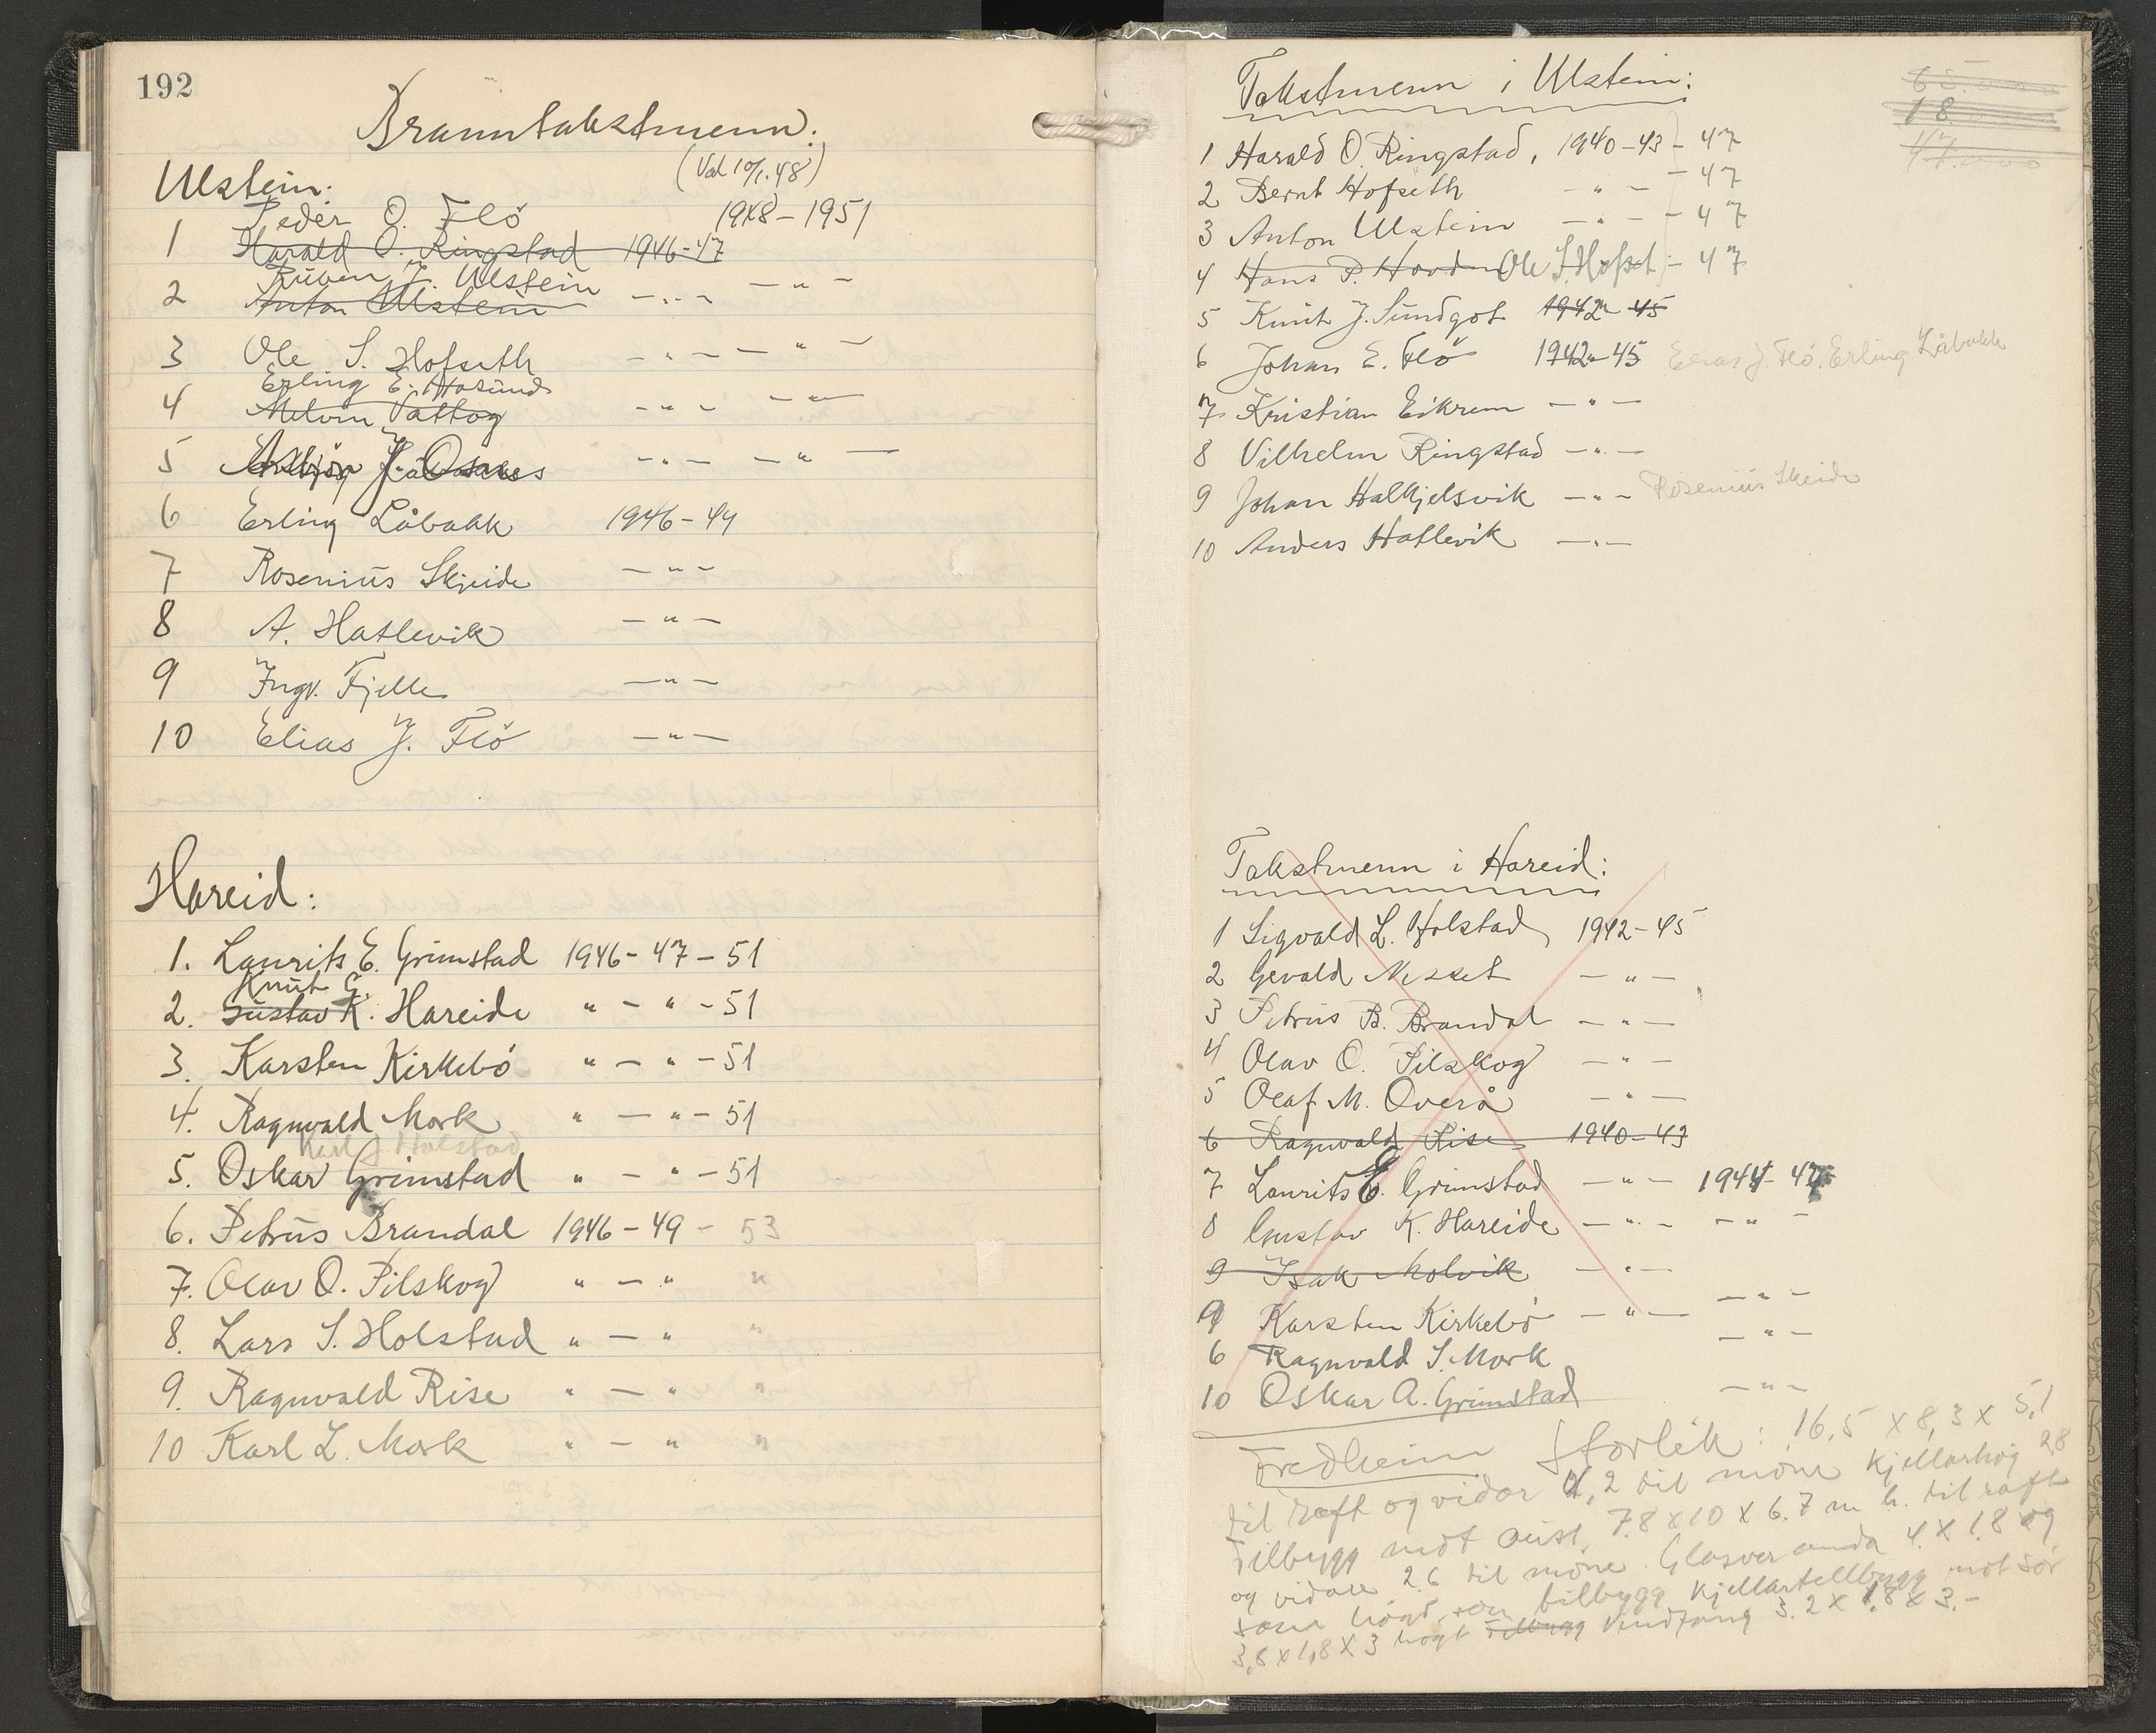 192
Branntakstmenn:
(Val 10/1.48)
Ulstein:
Peder O. Flö 1948-1951
1 Harald O. Ringstad 1946-47
Ruben J. Ulstein - " -
2 Anton Ulstein - " -
3 Ole S. Hofseth - " - - " -
Erling E. Hasund
4 Melvin Vattøy - " - - " -
5 Asbjør J. Osnes - " - - " -
6 Erling Låbakk 1946-49
7 Rosenius Skjeide - " -
8 A. Hatlevik - " -
9 Ingv. Fjelle - " -
10 Elias J. Flö - " -
Hareid:
1. Laurits E. Grimstad 1946-47-51
Knut G.
2. Gustav K. Hareide " - " -51
3. Karsten Kirkebö " - " -51
4. Ragnvald Mork " - " -51
Karl J Holstad
5. Oskar Grimstad " - " -51
6. Petrus Brandal 1946-49 - 53
7. Olav O. Pilskog " - " "
8. Lars S. Holstad " - " "
9. Ragnvald Rise " - " "
10 Karl L. Mork " - " "
Takstmenn i Ulstein:
18
47
1 Harald O. Ringstad, 1940-43 - 47
2 Bernt Hofseth - " - - 47
3 Anton Ulstein - " - - 47
4 Hans P. Hovden Ole S. Hofset - 47
5 Knut J. Sundgot 1942-45
6 Johan E. Flö 1942-45 Elias J. Flö. Erling Låbakk
7 Kristian Eikrem - " -
8 Vilhelm Ringstad - " -
9 Johan Halkjelsvik - " - Rosenius Skeide
10 Anders Hatlevik - " -
Takstmenn i Hareid:
1 Sigvald L. Holstad 1942-45
2 Gevald Nesset - " -
3 Petrus B. Brandal - " -
4 Olav O. Pilskog - " -
5 Olaf M. Overå - " -
6 Ragnvald Rise 1940-43
7 Laurits E. Grimstad - " - 1944-47
8 Gustav K. Hareide - " - - " -
9 Isak Molvik - " -
9 Karsten Kirkebö - " - - " -
6 Ragnvald S. Mork - " -
10 Oskar A. Grimstad - " -
Fredheim Storleik: 16,5 x 8,3 x 5,1
til raft og vidar 2 til möne kjellarhög 28
Tilbygg mot aust, 7.8 x 10 x 6.7 m h. til raft
og vidare 2.6 til möne. Glasveranda 4 x 1.8 og
som högd som tilbygg kjellartilbygg mot sör
3,8 x 1,8 x 3 högt Tilbygg Vindfang 3.2 x 1.8 x 3.-